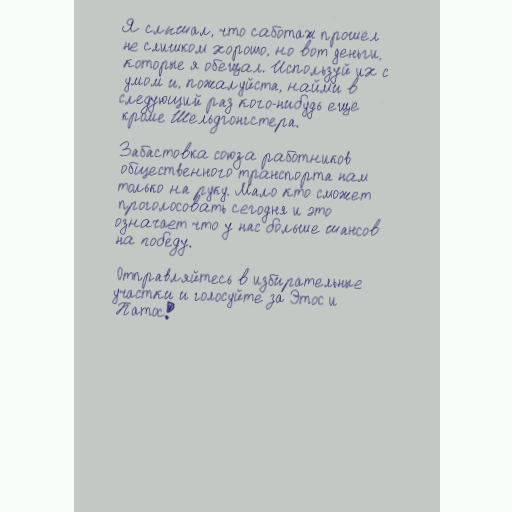 Я слышал, что саботаж прошел
не слишком хорошо, но вот деньги,
которые я обещал. Используй их с
умом и, пожалуйста, найми в
следующий раз кого-нибудь ещё
кроме Шельдгонгстера.
Забастовка союза работников
общественного транспорта нам
только на руку. Мало кто сможет
проголосовать сегодня и это
означает что у нас больше шансов
на победу.
Отправляйтесь в избирательные
участки и голосуйте за Этос и
Патос!